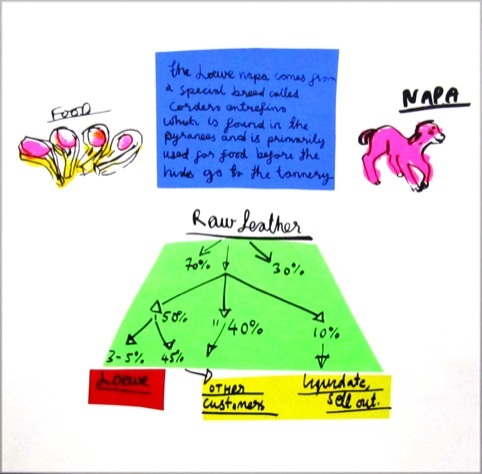 FOOD
The Loewe napa comes from
a special breed called
Cordero entrefino
which is found in the
pyranees and is primarily
used for food before the
hides go to the tannery
NAPA
Raw leather
70%
30%
50%
" 40%
10%
3-5%
45%
Loewe
OTHER
Customers
Liquidate,
Sell out.